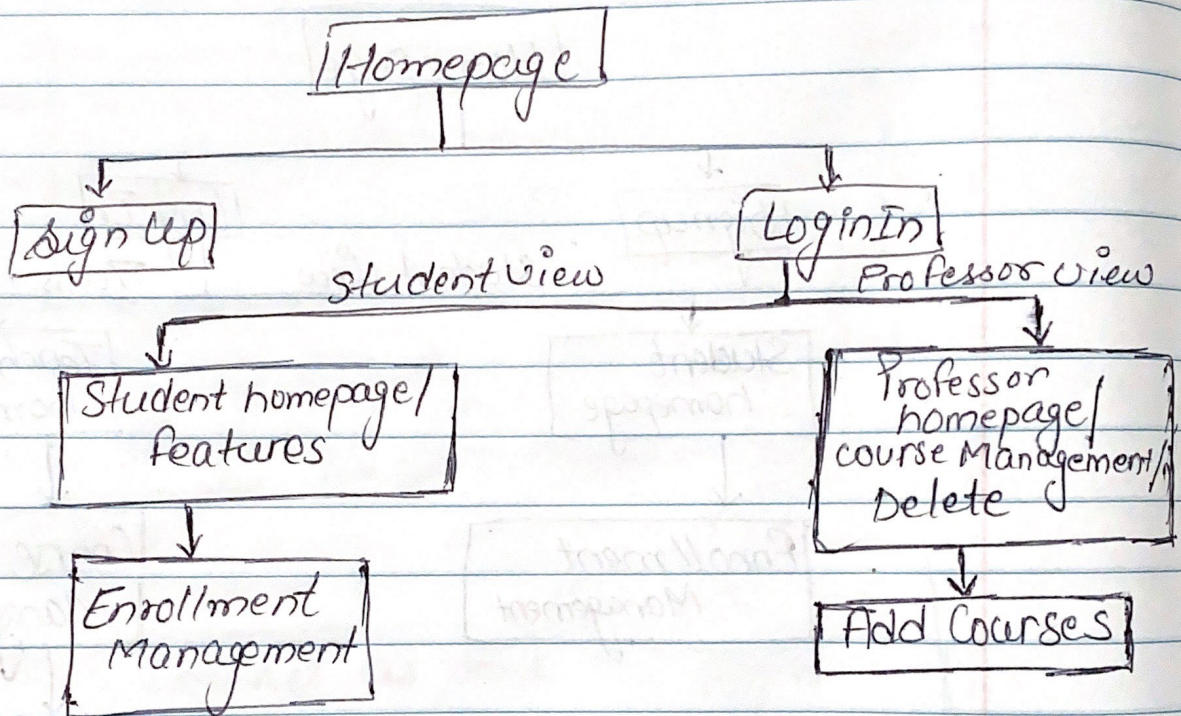 Homepage
Sign Up
LoginIn
Student View
Professor View
Student homepage/
features
Professor
homepage/
course Management/
Delete
Enrollment
Management
Add Courses